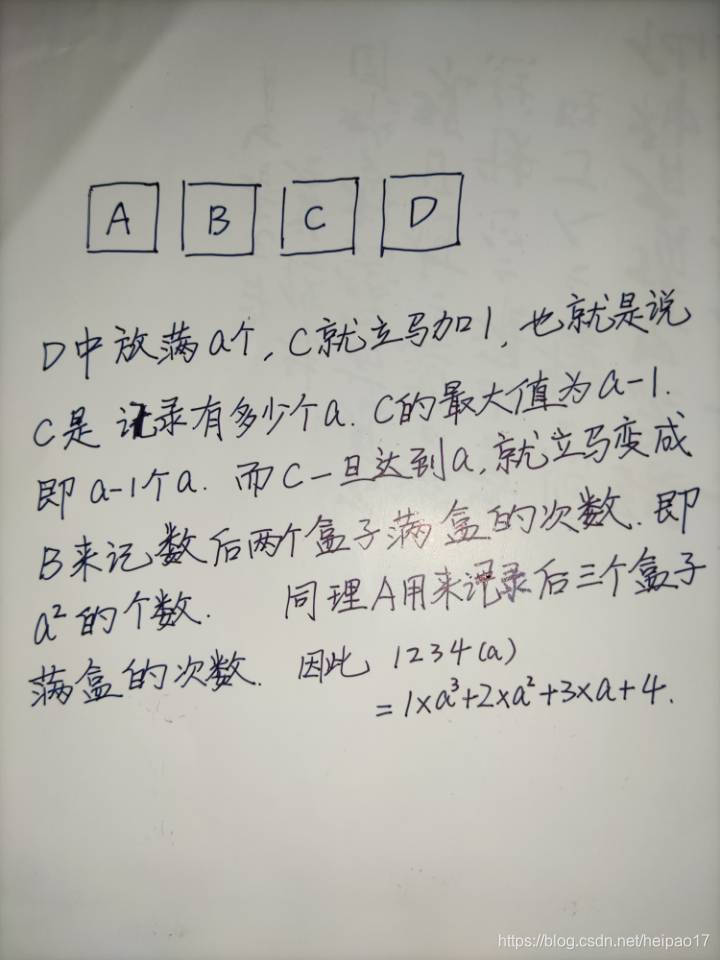 A B C D
D中放满a个, C就立马加1, 也就是说
C是 记录有多少个a. C的最大值为a-1.
即 a-1个a. 而C一旦达到a, 就立马变成
B来记数后两个盒子满盒的次数. 即
a²的个数. 同理A用来记录后三个盒子
满盒的次数. 因此 1234(a)
=1×a³+2×a²+3×a+4.
https://blog.csdn.net/heipao17